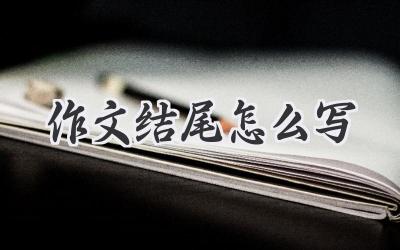 作文结尾怎么写